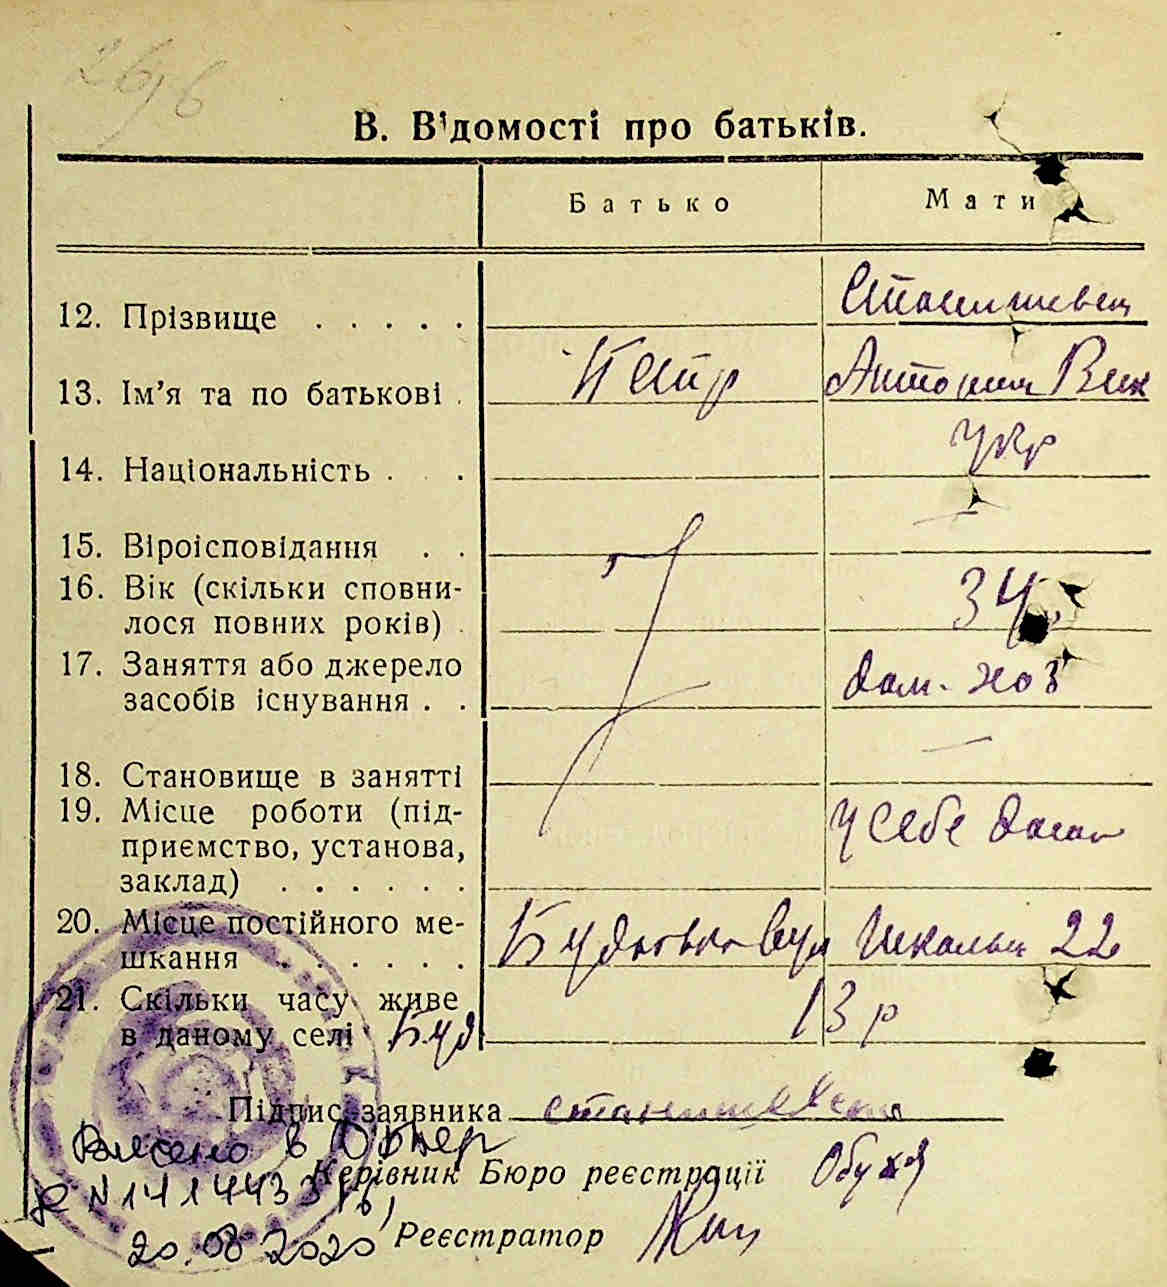 266
В. Відомості про батьків.
Батько Мати
12. Прізвище . . . . .
13. Ім'я та по батькові . Петр Антонина Вик
14. Національність . . . укр
15. Віроісповідання . . —
16. Вік (скільки сповни-
лося повних років) . 34
17. Заняття або джерело
засобів існування . . дом. хоз
18. Становище в занятті —
19. Місце роботи (під-
приємство, установа,
заклад) . . . . . . у себе дома
20. Місце постійного ме-
шкання . . . . . . вул Школьн 22
21. Скільки часу живе
в даному селі Буд 13 р
Підпис заявника
Внесено в
N 141443
Керівник Бюро реєстрації
20.08.2020 Реєстратор